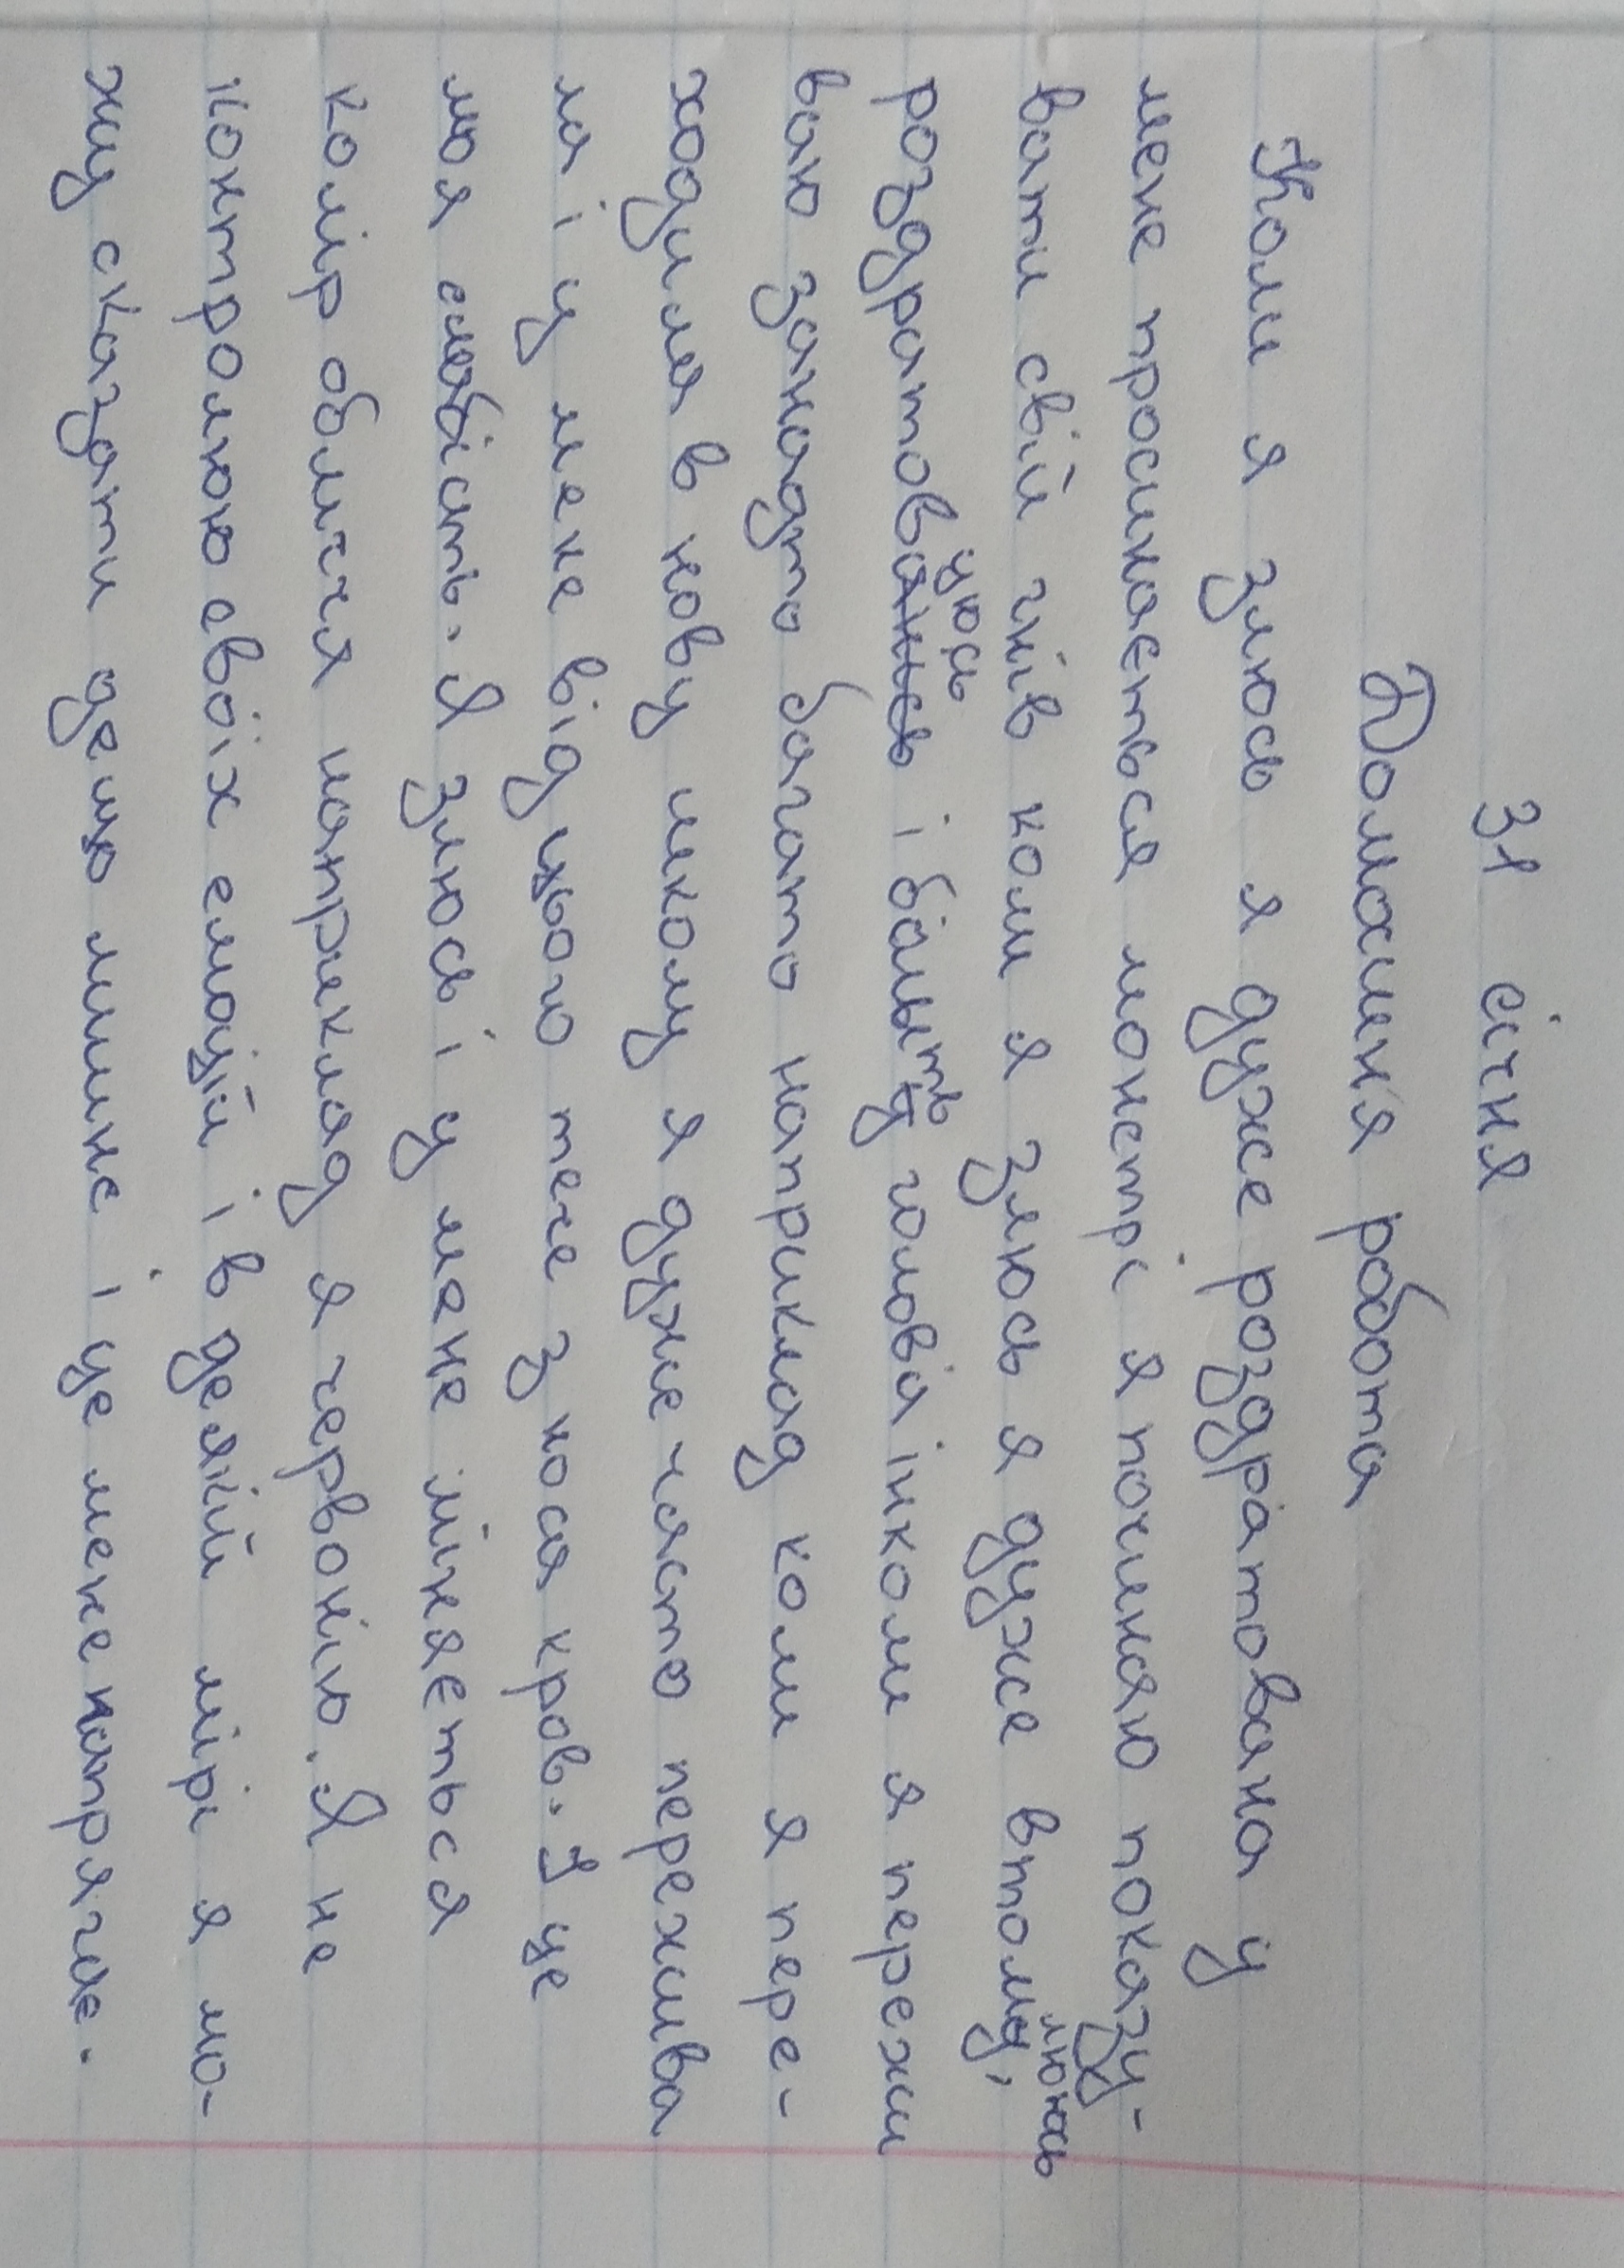 31 січня
Домашня робота
Коли я злюсь я дуже роздратована у
мене просинається монстрі я починаю показу-
вати свій гнів коли я злюсь я дуже втомлююсь,
роздратовуюсь і болить голова інколи я пережи
ваю занадто багато наприклад коли я пере-
ходила в нову школу я дуже часто пережива
ла і у мене від цього тече з носа кров. І це
моя слабість. Я злюсь і у мене міняється
колір обличчя наприклад я червонію. Я не
контролюю своїх емоцій і в деякій мірі я мо-
жу сказати дещо лишнє і це мене напрягає.